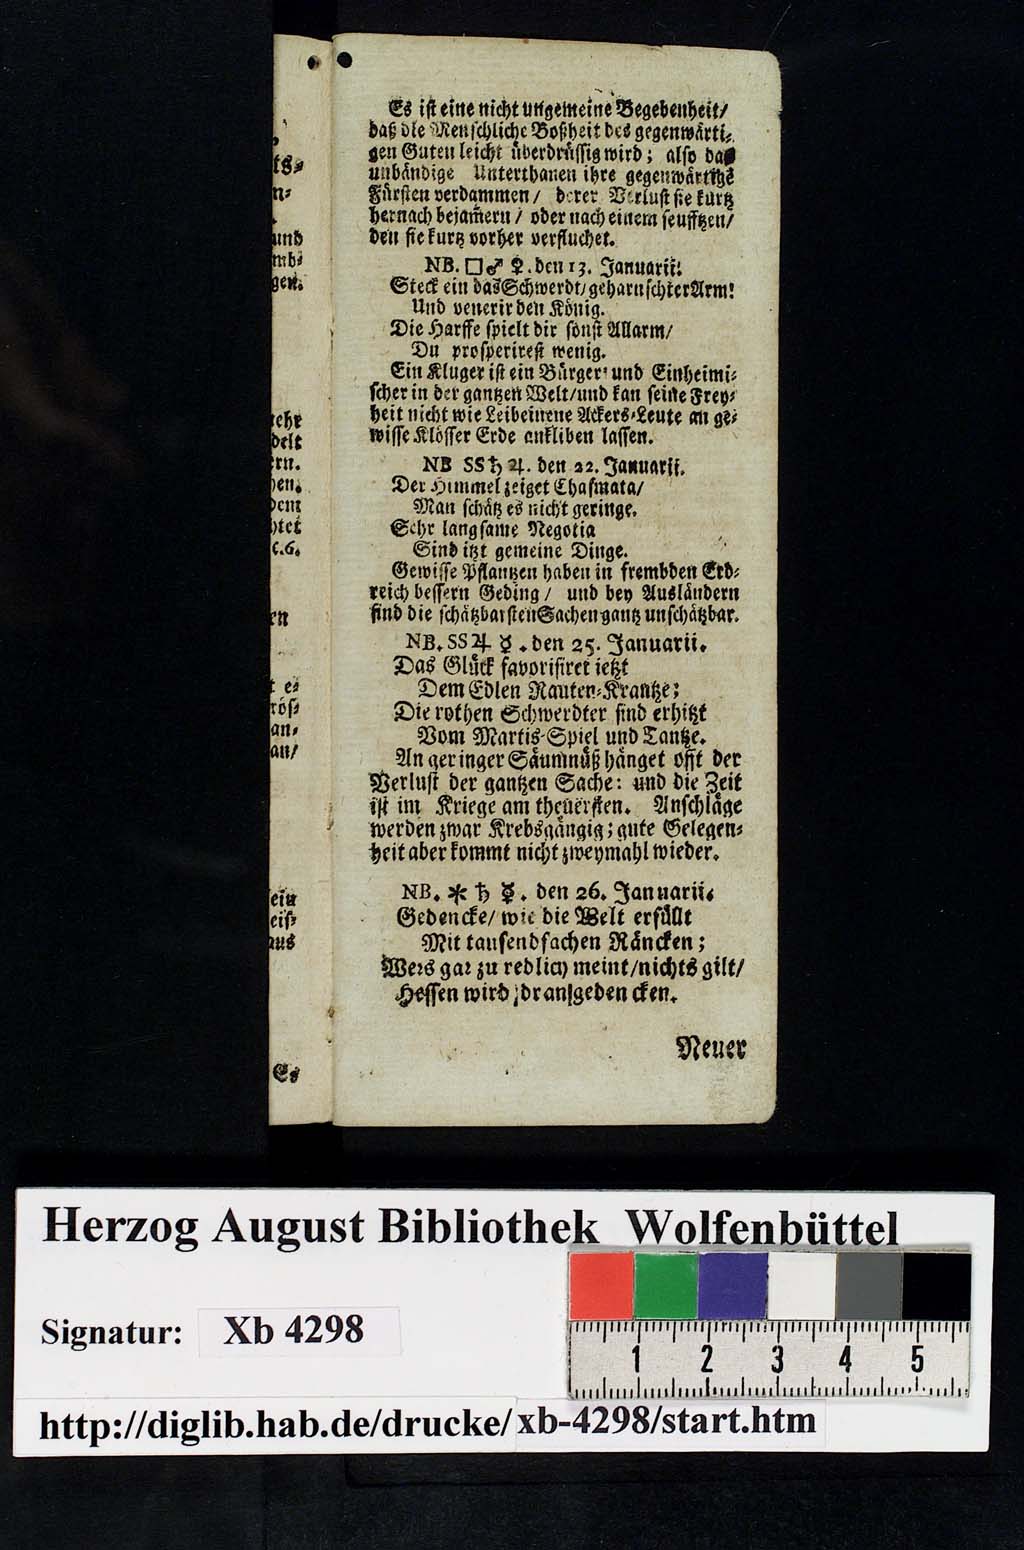 Es ist eine nicht ungemeine Begebenheit/
daß die Menschliche Boßheit des gegenwärti-
gen Guten leicht überdrüssig wird; also daß
unbändige Unterthanen ihre gegenwärtige
Fürsten verdammen/ derer Verlust sie kurtz
hernach bejam̃ern/ oder nach einem seufftzen/
den sie kurtz vorher verfluchet.
NB. □♂ ♀. den 13. Januarii.
Steck ein das Schwerdt/ geharnschter Arm!
Und venerir den König.
Die Harffe spielt dir sonst Allarm/
Du prosperirest wenig.
Ein Kluger ist ein Bürger und Einheimi-
scher in der gantzen Welt/ und kan seine Frey-
heit nicht wie Leibeinene Ackers-Leute an ge-
wisse Klösser Erde ankliben lassen.
NB SS ♄ ♃. den 22. Januarii.
Der Himmel zeiget Chasmata/
Man schätz es nicht geringe.
Sehr langsame Negotia
Sind itzt gemeine Dinge.
Gewisse Pflantzen haben in frembden Erd-
reich bessern Geding/ und bey Ausländern
sind die schätzbarsten Sachen gantz unschätzbar.
NB. SS ♃ ☿. den 25. Januarii.
Das Glück favorisiret ietzt
Dem Edlen Rauten-Krantze;
Die rothen Schwerdter sind erhitzt
Vom Martis-Spiel und Tantze.
An geringer Säumnüß hänget offt der
Verlust der gantzen Sache: und die Zeit
ist im Kriege am theuersten. Anschläge
werden zwar Krebsgängig; gute Gelegen-
heit aber kommt nicht zweymahl wieder.
NB. ⚹ ♄ ☿. den 26. Januarii.
Gedencke/ wie die Welt erfüllt
Mit tausendfachen Räncken;
Wers gar zu redlich meint/ nichts gilt/
Hessen wird dran gedencken.
Neuer
Es
Herzog August Bibliothek Wolfenbüttel
Signatur: Xb 4298
1 2 3 4 5
http://diglib.hab.de/drucke/xb-4298/start.htm